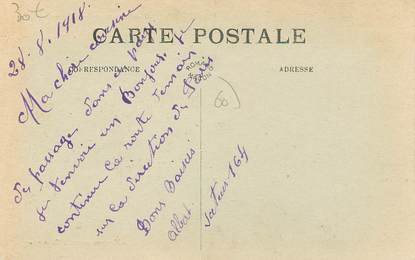 30€
28.8.1918.
CARTE POSTALE
CORRESPONDANCE
ADRESSE
66
Ma chère cousine
De passage dans le pays
je t'envoie un Bonjour. Je
continue la route demain
sur la direction de Paris
Bons Baisers
Albert
164